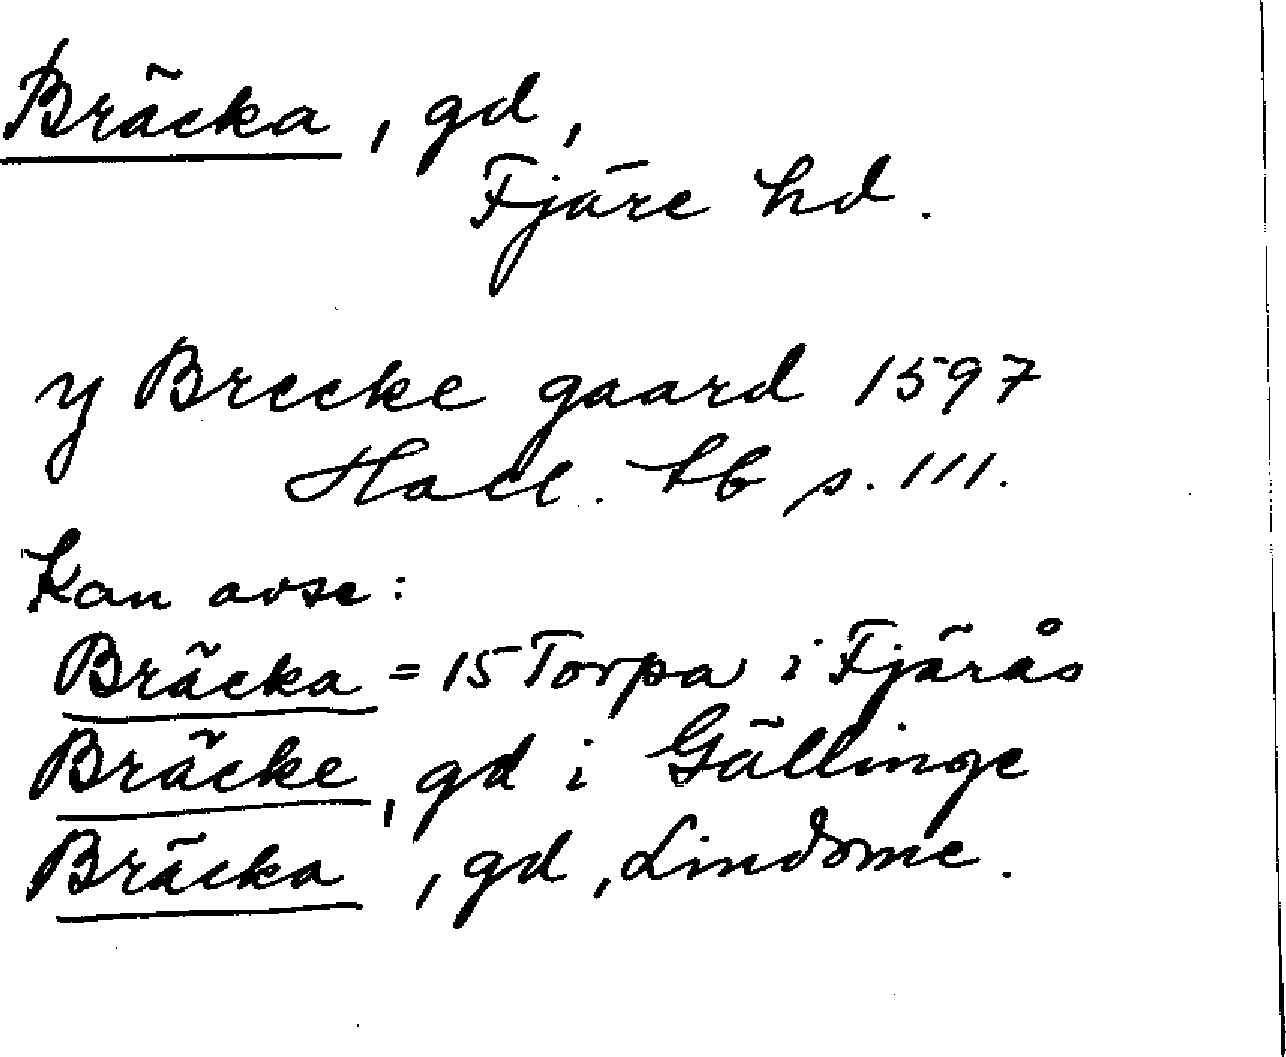 Bräcka, gd,
Fjäre hd.
y Brecke gaard 1597
Hall. tb s. 111.
Kan avse:
Bräcka = 15 Torpa i Fjärås
Bräcke, gd i Gällinge
Bräcka, gd, Lindome.